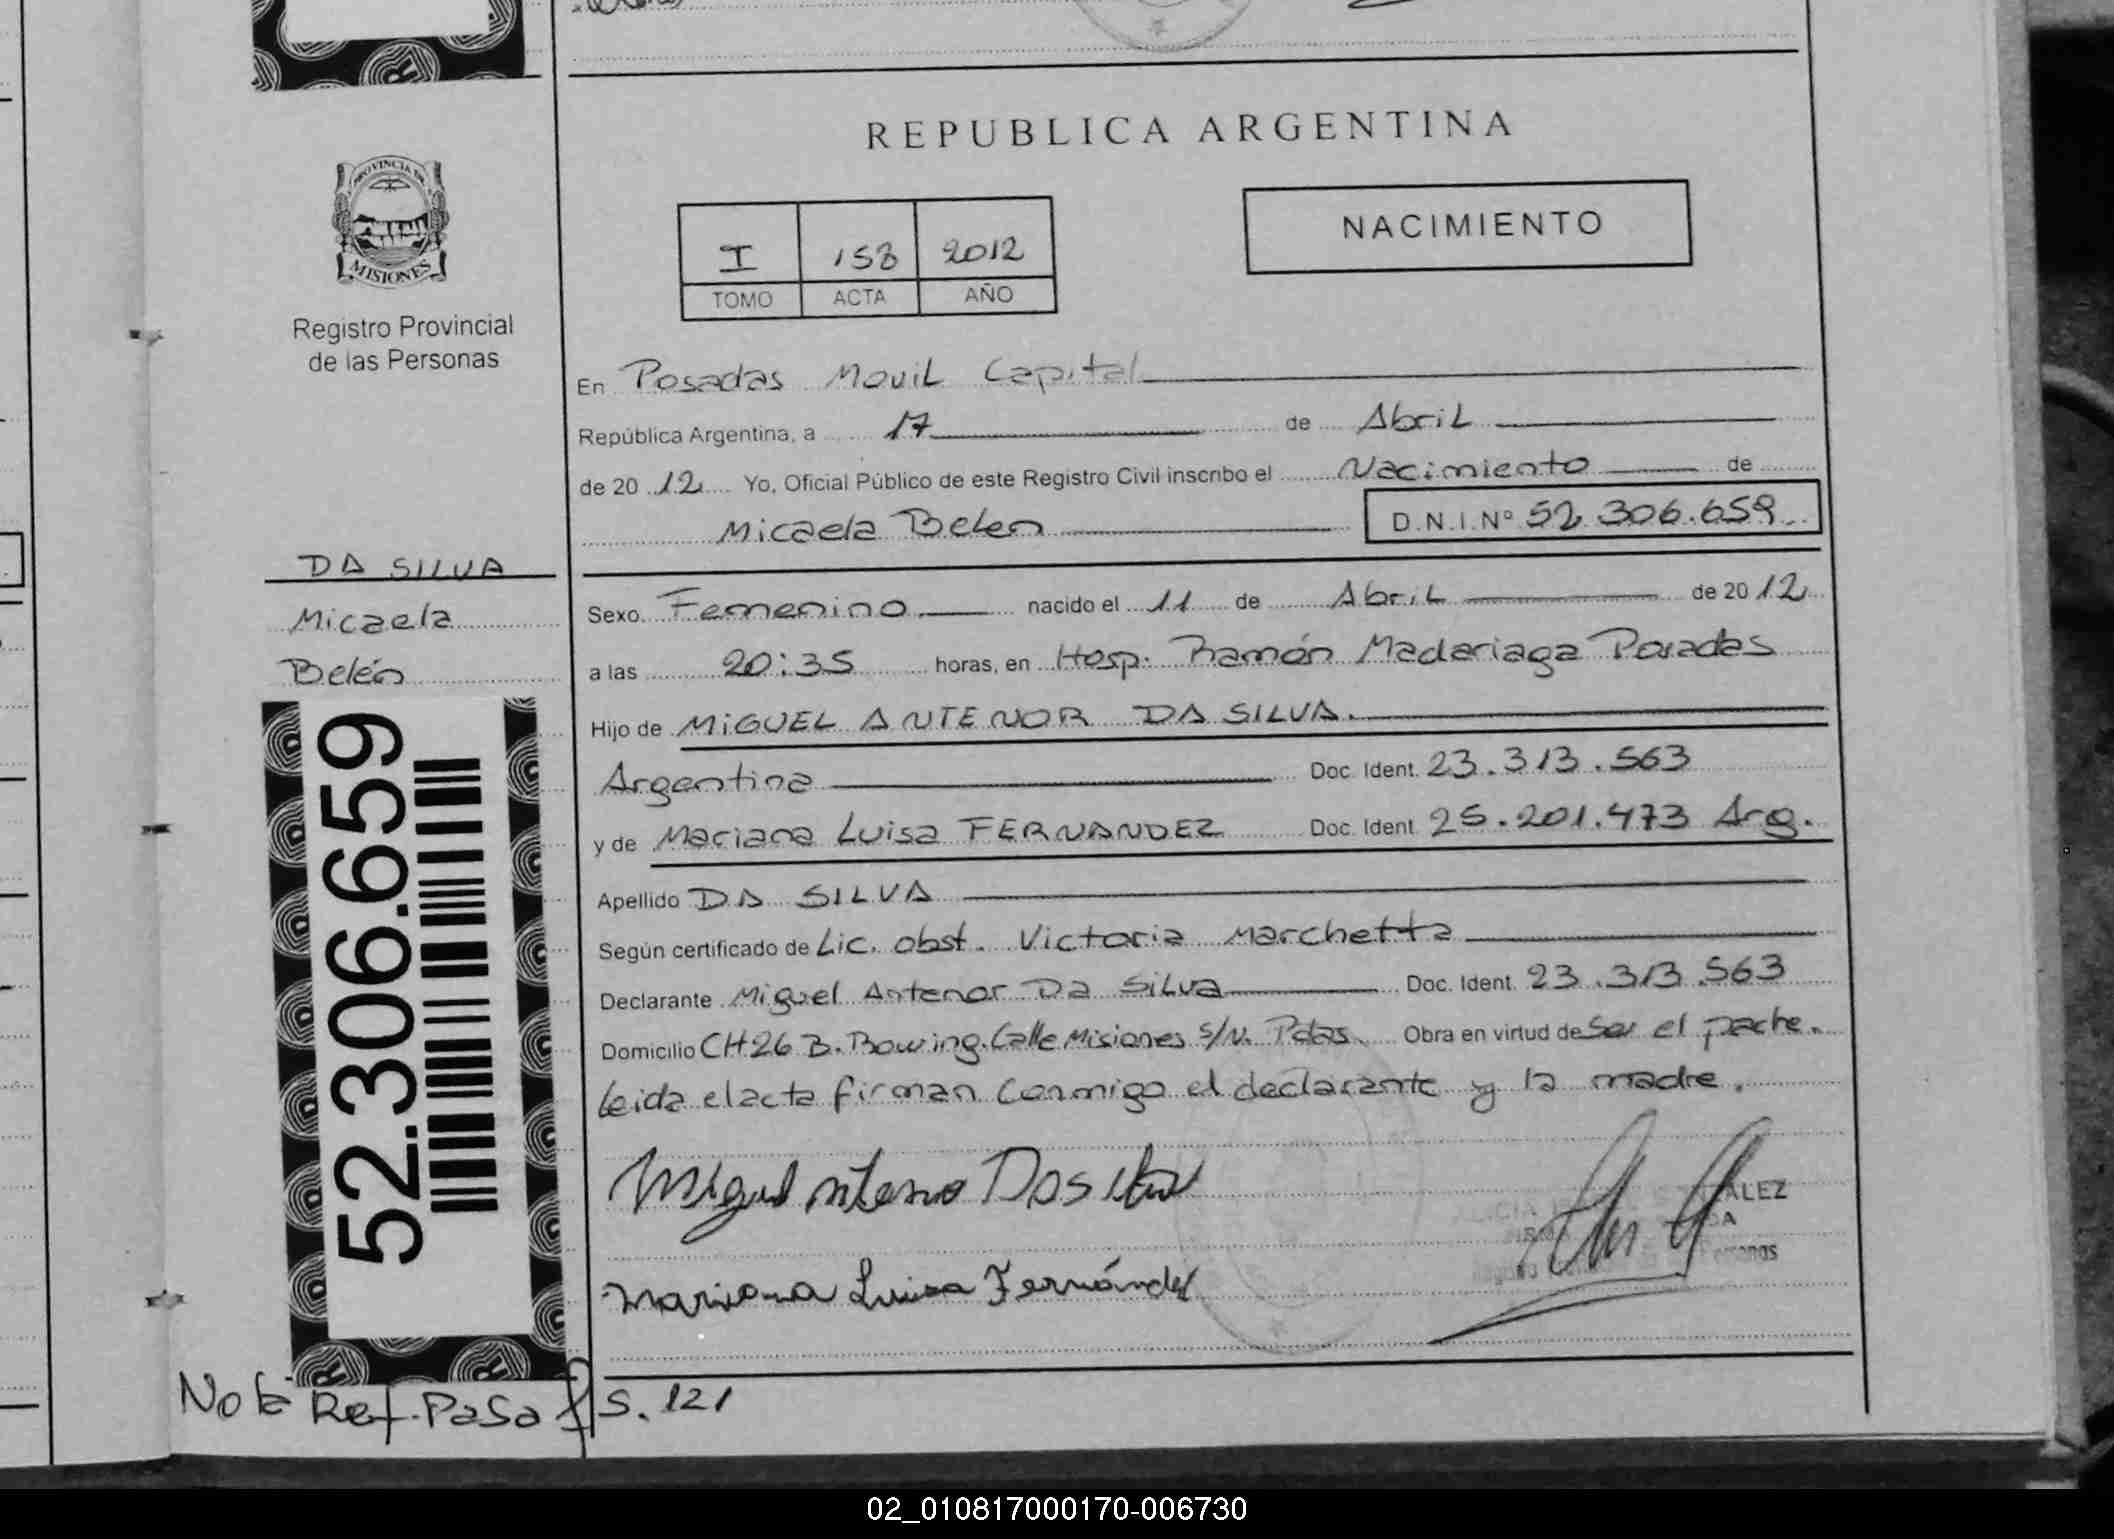 REPUBLICA ARGENTINA
PROVINCIA DE
MISIONES
Registro Provincial
de las Personas
I 158 2012
TOMO ACTA AÑO
NACIMIENTO
En Posadas Movil Capital
República Argentina, a 17 de Abril
de 20 12 Yo, Oficial Público de este Registro Civil inscribo el Nacimiento de
Micaela Belen D.N.I.Nº 52.306.659
DA SILVA
Micaela
Belén
52.306.659
Sexo Femenino nacido el 11 de Abril de 20 12
a las 20:35 horas, en Hosp. Ramón Madariaga Posadas
Hijo de MIGUEL ANTENOR DA SILVA.
Argentina Doc. Ident. 23.313.563
y de Mariana Luisa FERNANDEZ Doc. Ident. 25.201.473 Arg.
Apellido DA SILVA
Según certificado de Lic. obst. Victoria Marchetta
Declarante Miguel Antenor Da Silva Doc. Ident. 23.313.563
Domicilio CH26 B. Bowing. Calle Misiones s/N. Pdas. Obra en virtud de ser el padre.
Leida el acta firman conmigo el declarante y la madre.
Mariana Luisa Fernández
Nota Ref. Pasa fs. 121
02_010817000170-006730